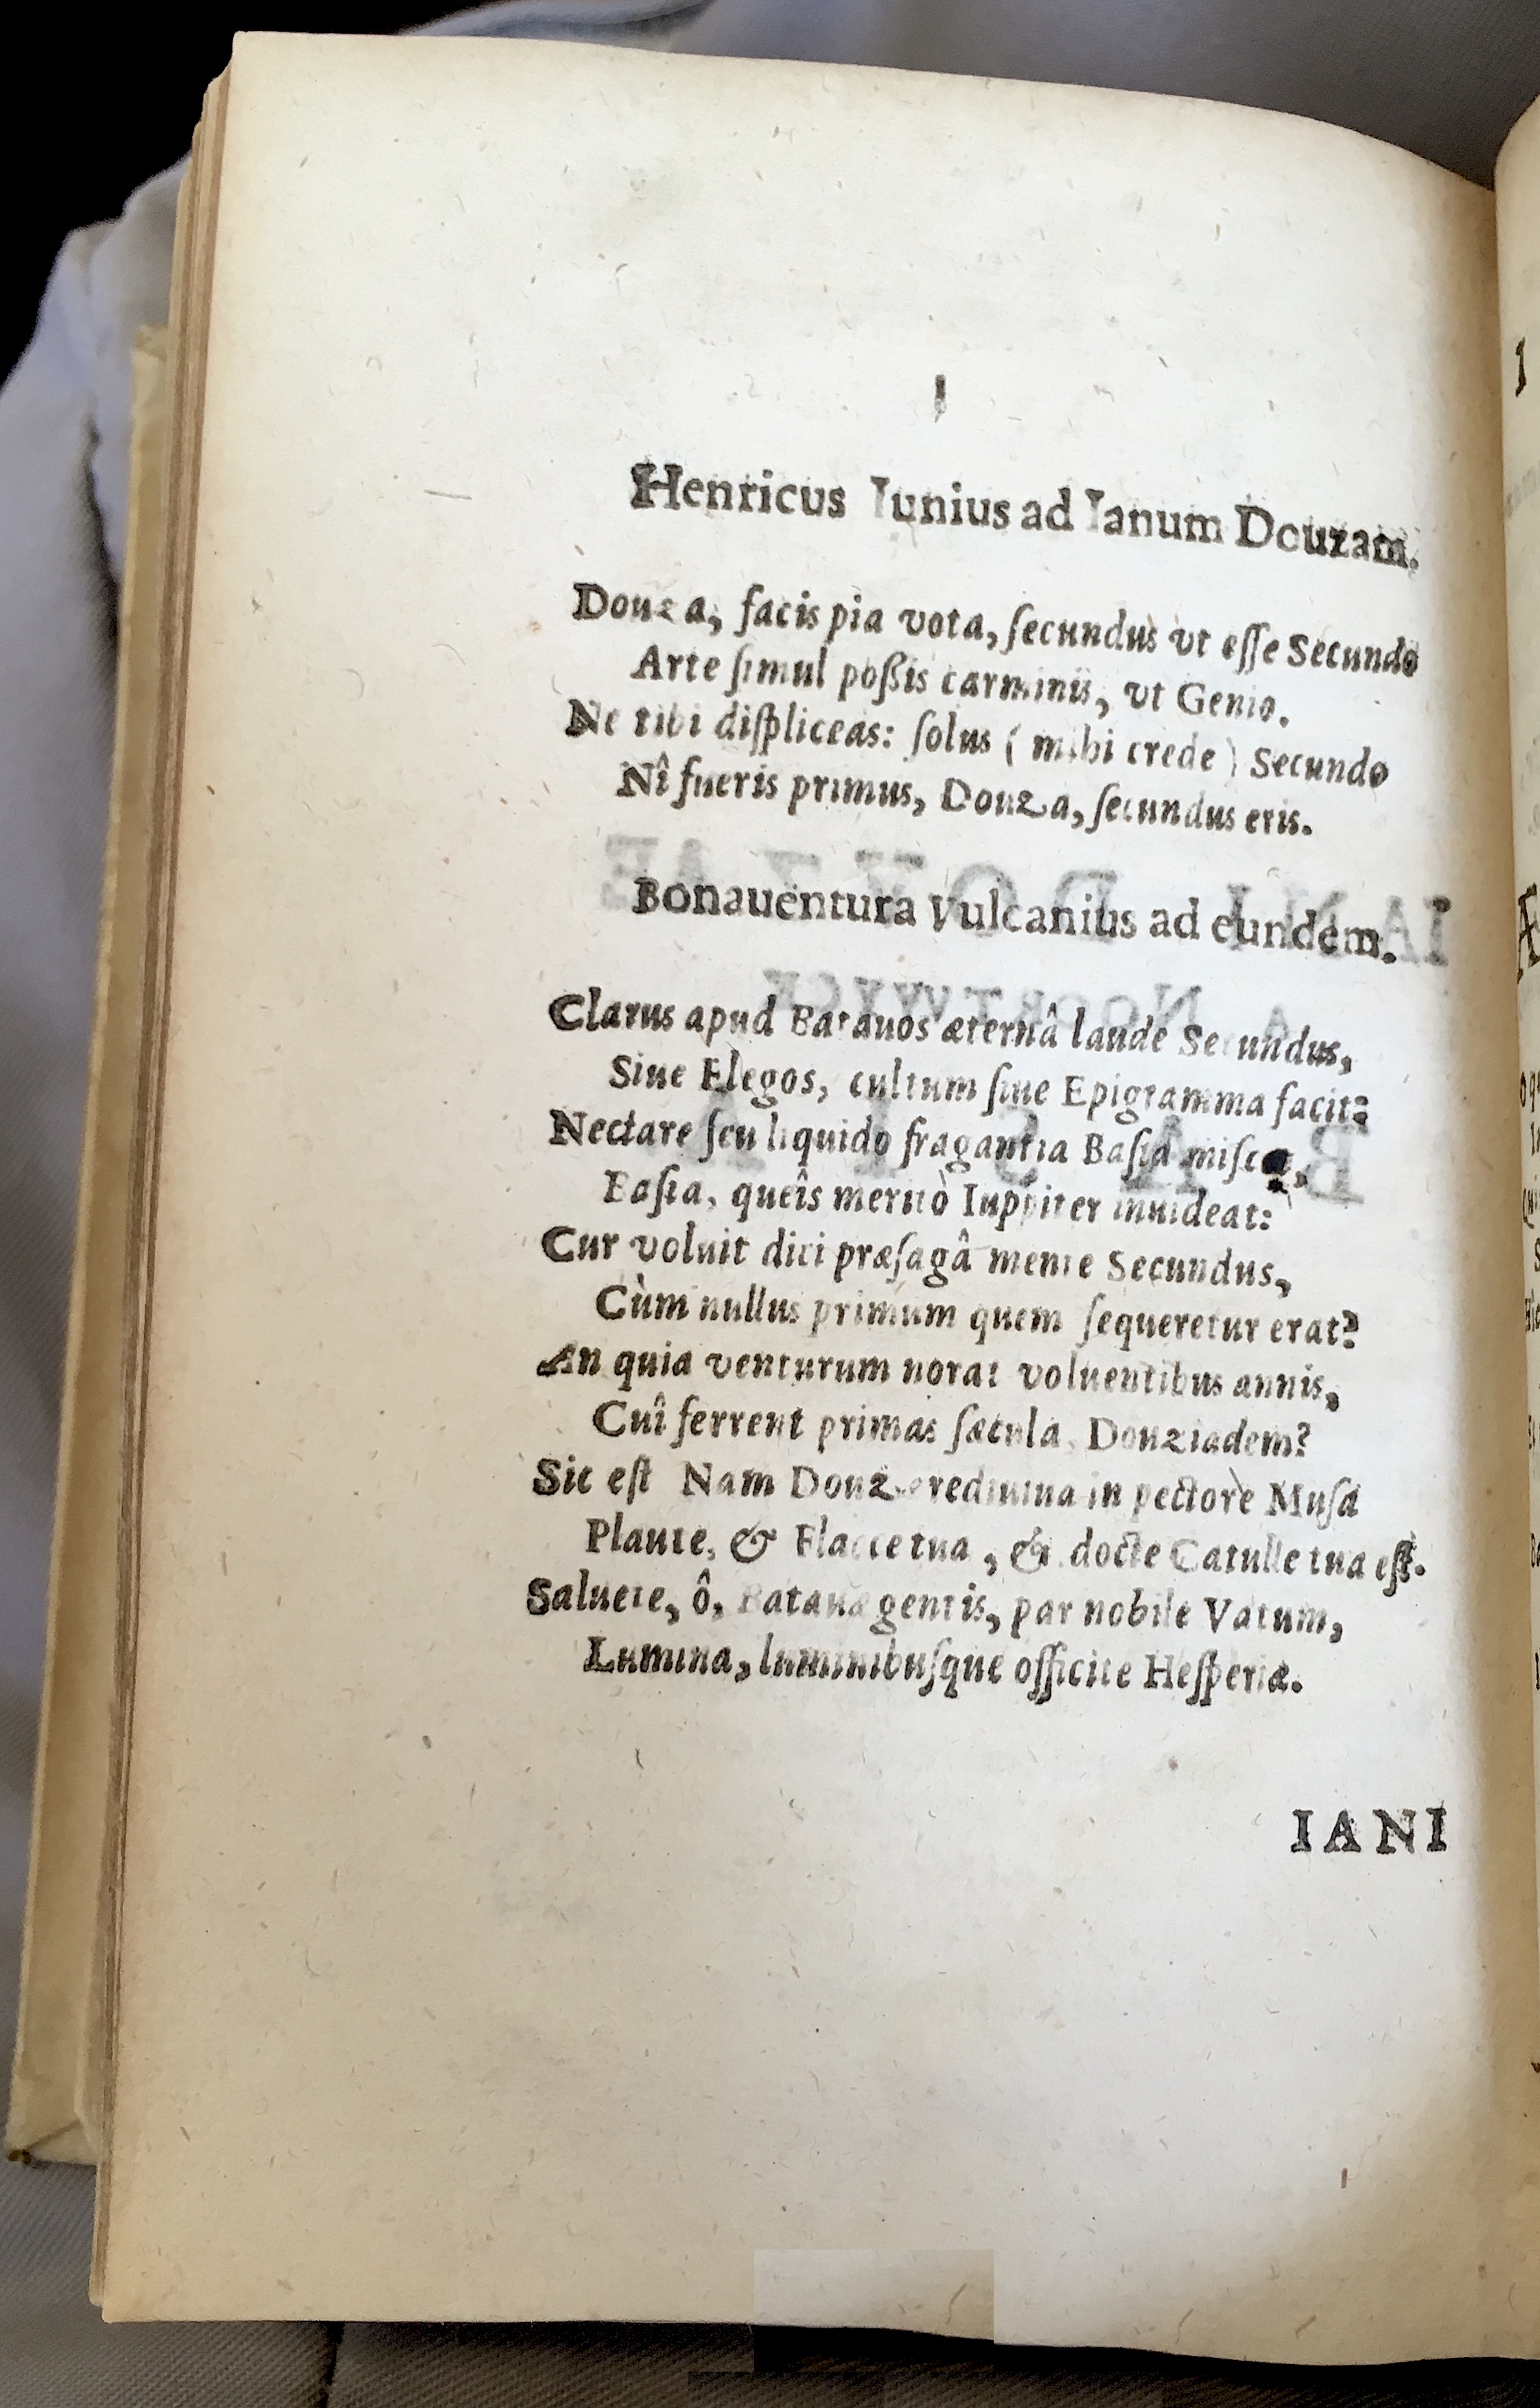 Henricus Iunius ad Ianum Douzam.
Douza, facis pia vota, ſecundus vt eſſe Secundo
Arte ſimul poßis carminis, vt Genio.
Ne tibi diſpliceas: ſolus ( mihi crede ) Secundo
Nî fueris primus, Douza, ſecundus eris.
Bonauentura Vulcanius ad eundem.
Clarus apud Batauos æternâ laude Secundus,
Siue Elegos, cultum ſiue Epigramma facit:
Nectare ſeu liquido fragantia Baſia
Baſia, queîs meritò Iuppiter inuideat:
Cur voluit dici præſagâ mente Secundus,
Cùm nullus primum quem ſequeretur erat?
An quia venturum norat voluentibus annis,
Cuî ferrent primas ſæcula Douziadem?
Sic eſt Nam rediuiua in pectore Muſa
Plaute, & Flacce tua, & docte Catulle tua eſt.
Saluete, ô, Batauæ gentis, par nobile Vatum,
Lumina, luminibuſque officite Heſperiæ.
IANI